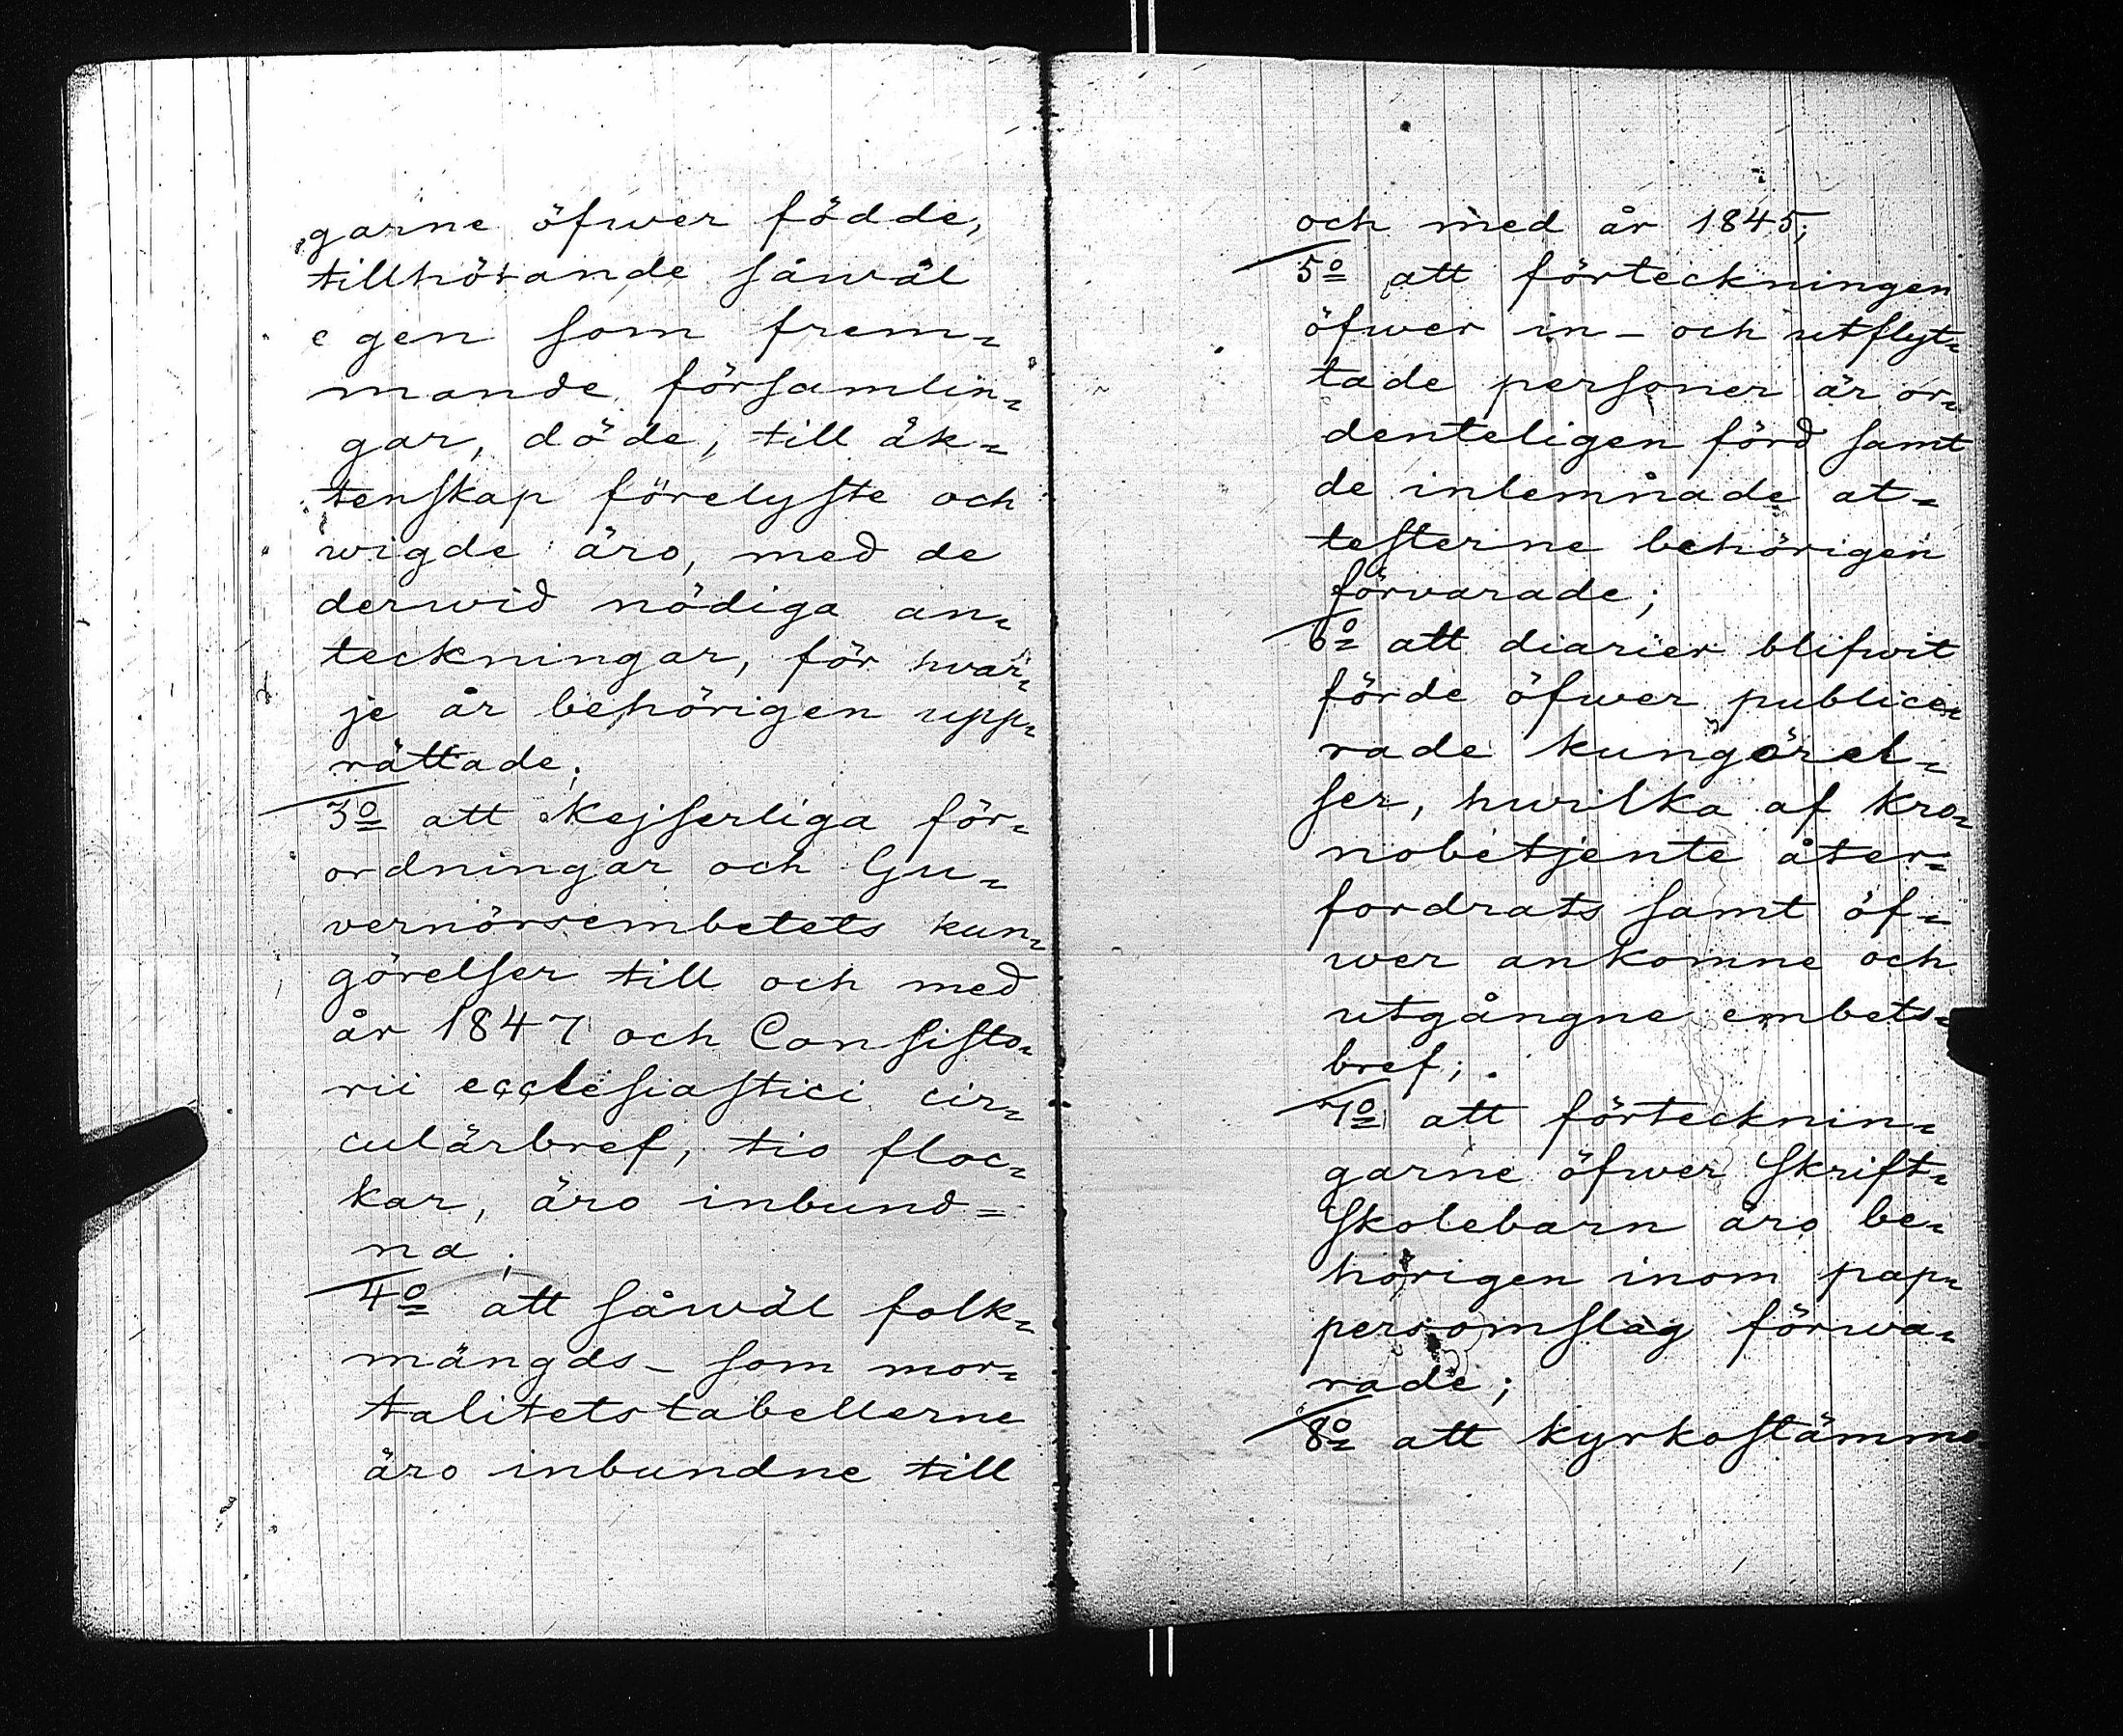 garne öfwer födde,
tillhörande såwäl
egen som frem-
mande församlin-
gar, döde, till äk-
tenskap förelyste och
wigde äro, med de
derwid nödiga an-
teckningar, för hvar-
je år behörigen upp-
rättade;
3o att Kejserliga för-
ordningar och Gu-
vernörsembetets kun-
görelser till och med
år 1847 och Consisto-
rii ecclesiastici cir-
culärbref, tio floc-
kar, äro inbund=
na;
4o att såwäl folk-
mängds- som mor-
talitetstabellerne
äro inbundne till
och med år 1845;
5o att förteckningen
öfwer in- och utflyt-
tade personer är or-
denteligen förd samt
de inlemnade at-
testerne behörigen
förvarade;
6o att diarier blifwit
förde öfwer publice-
rade kungörel-
ser, hwilka af kro-
nobetjente åter-
fordrats samt öf-
wer ankomne och
utgångne embets-
bref;
7o att förtecknin-
garne öfwer Skrift-
Skolebarn äro be-
hörigen inom pap-
persomslag förwa-
rade;
8o att kyrkostämmo-